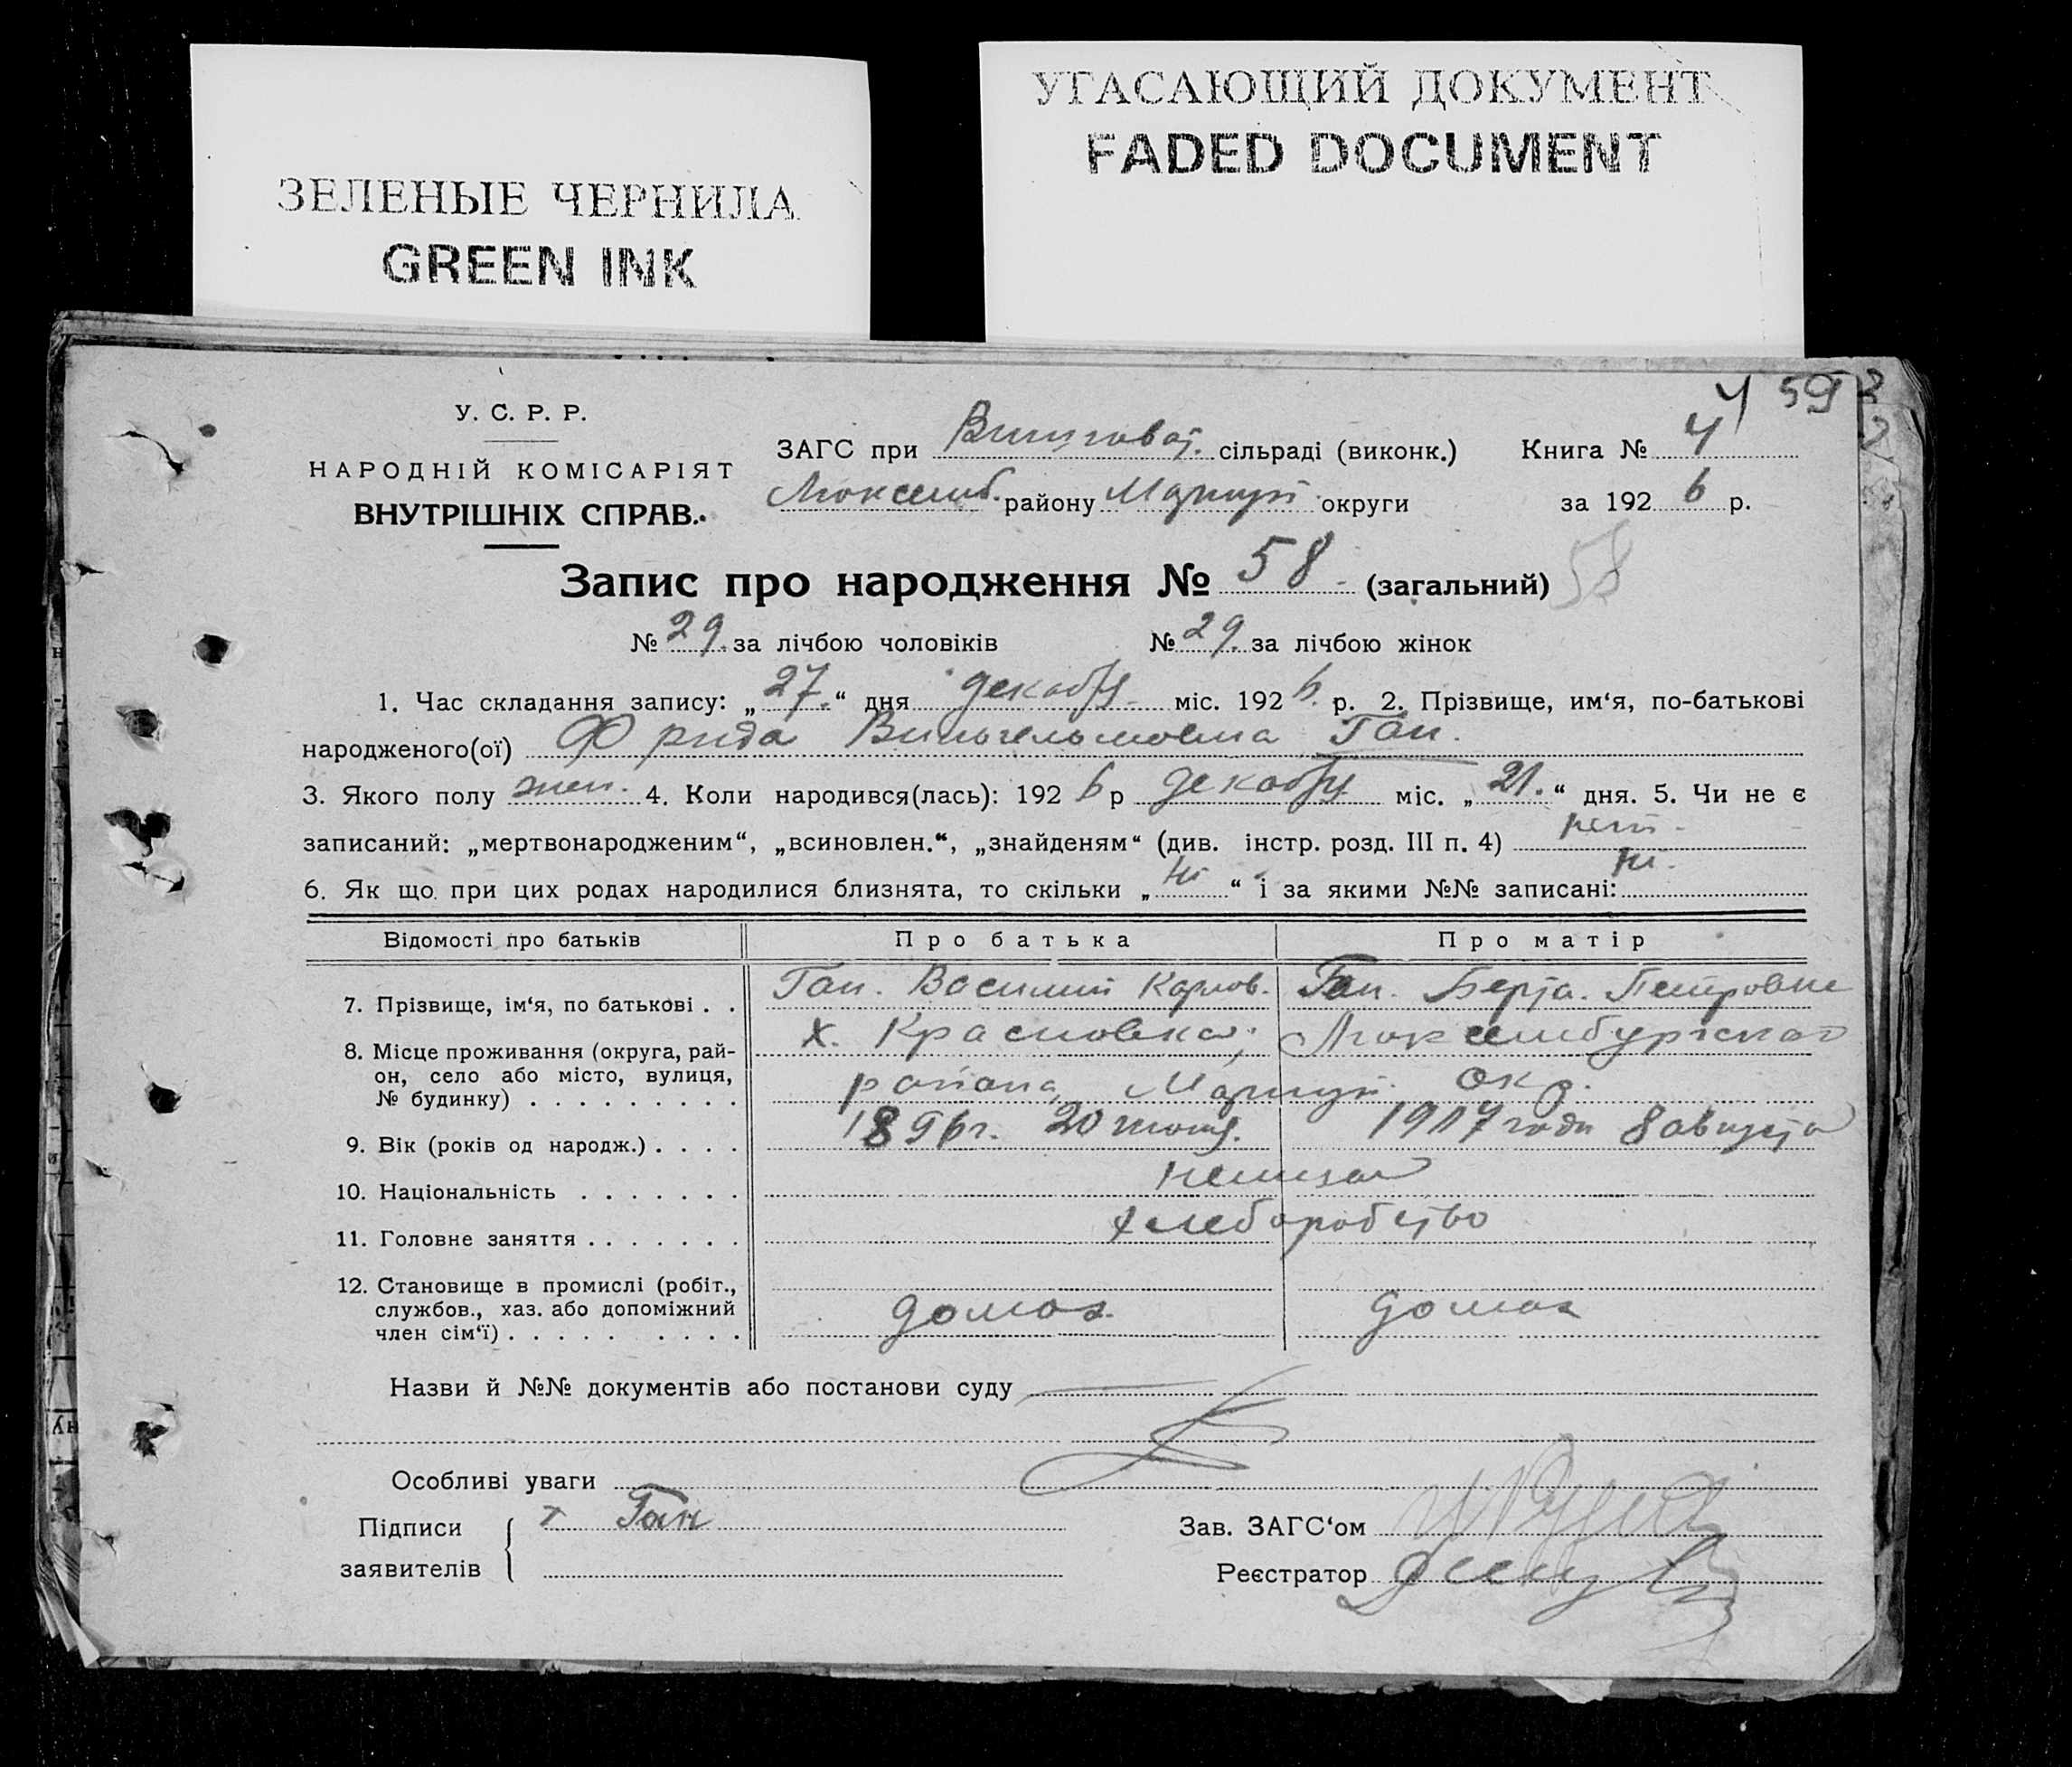 УГАСАЮЩИЙ ДОКУМЕНТ
FADED DOCUMENT
ЗЕЛЕНЫЕ ЧЕРНИЛА
GREEN INK
4 59
У. С. Р. Р.
НАРОДНІЙ КОМІСАРІЯТ
ВНУТРІШНІХ СПРАВ.
ЗАГС при сільраді (виконк.) Книга № 4
Люксемб. району Мариуп. округи за 1926 р.
Запис про народження № 58 (загальний) 58
№ 29. за лічбою чоловіків № 29. за лічбою жінок
1. Час складання запису: „27.“ дня декабря міс. 1926 р. 2. Прізвище, им‘я, по-батькові
народженого(ої) Фрида Вильгельмовна Ган.
3. Якого полу жен. 4. Коли народився(лась): 1926 р декабря міс. „21.“ дня. 5. Чи не є
записаний: „мертвонародженим“, „всиновлен.“, „знайденям“ (див. інстр. розд. III п. 4) нет
6. Як що при цих родах народилися близнята, то скільки „ні“ і за якими №№ записані: ні.
Відомості про батьків Про батька Про матір
7. Прізвище, ім‘я, по батькові . . Ган. Василий Карлов. Ган. Берта. Петровна
8. Місце проживання (округа, рай-
он, село або місто, вулиця,
№ будинку) . . . . . . . . . х. Красновка, Люксембургского
района, Мариуп. окр.
9. Вік (років од народж.) . . . . 1896г. 20 8 августа
10. Національність . . . . . . .
11. Головне заняття . . . . . . . хлеборобство
12. Становище в промислі (робіт.,
службов., хаз. або допоміжний
член сім‘ї) . . . . . . . . . домох. домох
Назви й №№ документів або постанови суду
Особливі уваги
Підписи
заявителів Ган
Зав. ЗАГС‘ом
Реєстратор